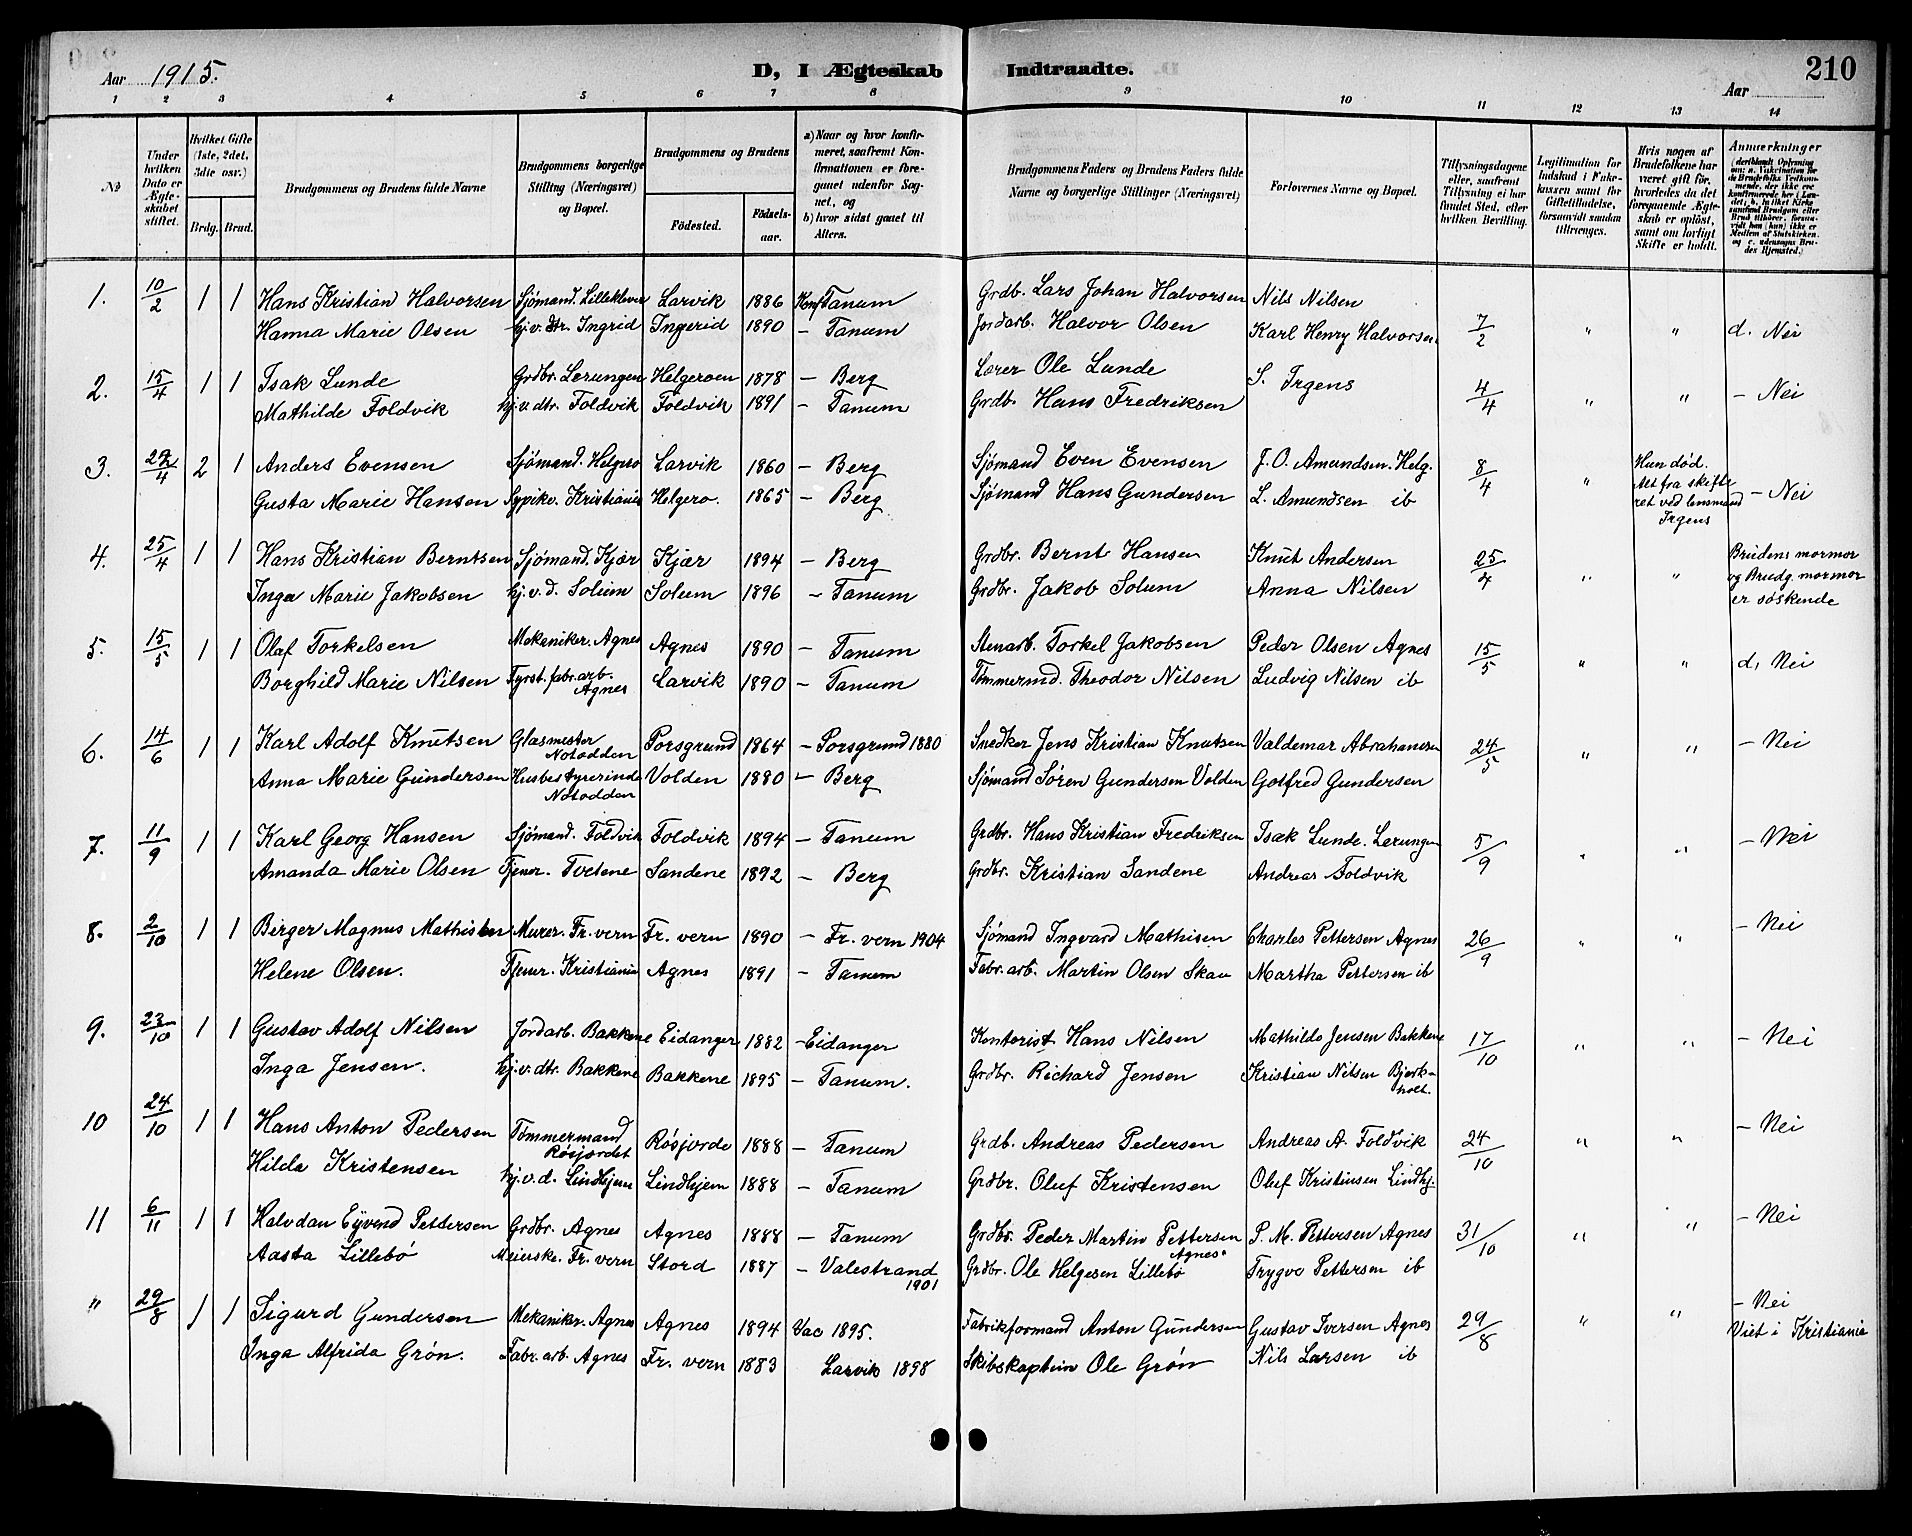 Aar 1915. D, I Ægteskab Indtraadte. Aar 210
1 2 3 4 5 6 7 8 9 10 11 12 13 14
No
Under hvilken Dato er Ægteskabet stiftet.
Hvilket Gifte (1ste, 2det, 3die osv.)
Brdg. Brud.
Brudgommens og Brudens fulde Navne
Brudgommens borgerlige Stilling (Næringsvei) og Bopæl.
Brudgommens og Brudens
Fødested. Fødselsaar.
a) Naar og hvor konfirmeret, saafremt Konfirmationen er foregaaet udenfor Sognet, og
b) hvor sidst gaaet til Alters.
Brudgommens Faders og Brudens Faders fulde Navne og borgerlige Stillinger (Næringsvei)
Forlovernes Navne og Bopæl.
Tillysningsdagene eller, saafremt Tillysning ei har fundet Sted, efter hvilken Bevilling.
Legitimation for Indskud i Enkekassen samt for Giftetilladelse, forsaavidt saadan tiltrænges.
Hvis nogen af Brudefolkene har været gift før, hvorledes da det foregaaende Ægteskab er opløst, samt om lovligt Skifte er holdt.
Anmærkninger
1. 10/2 1 1 Hans Kristian Halvorsen Sjømand. Lilleklever Larvik 1886 Konf Tanum Grdb. Lars Johan Halvorsen Nils Nilsen
Hanna Marie Olsen hj.v. dtr. Ingrid Ingerid 1890 – Tanum Jordarb. Halvor Olsen Karl Henry Halvorsen 7/2 " " d. Nei
2. 15/4 1 1 Isak Lunde Grdbr. Lerungen Helgeroen 1878 – Berg Lærer Ole Lunde S. Irgens
Mathilde Foldvik hj.v. dtr. Foldvik Foldvik 1891 – Tanum Grdb. Hans Fredriksen 4/4 " " – Nei
3. 24/4 2 1 Anders Evensen Sjømand. Helgero Larvik 1860 – Berg Sjømand Even Evensen J. O. Amundsen. Helg. 8/4 " Hun død.
Att fra skifte
Gusta Marie Hansen Sypike. Kristiania Helgero. 1865 – Berg Sjømand Hans Gundersen L. Amundsen ib ret ved lensmand – Nei
Irgens
4. 25/4 1 1 Hans Kristian Berntsen Sjømand. Kjær Kjær 1894 – Berg Grdbr. Bernt Hansen Knut Andersen 25/4 " " Brudens mormor
og Brudg. mormor
Inga Marie Jakobsen hj.v.d. Solum Solum 1896 – Tanum Grdbr. Jakob Solum Anna Nilsen er søskende
5. 15/5 1 1 Olaf Torkelsen Mekaniker. Agnes Agnes 1890 – Tanum Stenarb. Torkel Jakobsen Peder Olsen Agnes 15/5 " " d. Nei
Borghild Marie Nilsen Fyrst.fabr.arb. Agnes Larvik 1890 – Tanum Tømmermd. Theodor Nilsen Ludvig Nilsen ib
6. 14/6 1 1 Karl Adolf Knutsen Glasmester Notodden Porsgrund 1864 – Porsgrund 1880 Snedker Jens Kristian Knutsen Valdemar Abrahamsen 24/5 " " – Nei
Anna Marie Gundersen Husbestyrerinde Notodden Volden 1880 – Berg Sjømand Søren Gundersen Volden Gotfred Gundersen
7. 11/9 1 1 Karl Georg Hansen Sjømand. Foldvik Foldvik 1894 – Tanum Grdbr. Hans Kristian Fredriksen Isak Lunde. Lerungen 5/9 " " – Nei
Amanda Marie Olsen Tjener. Tvetene Sandene 1892 – Berg Grdbr. Kristian Sandene Andreas Foldvik
8. 2/10 1 1 Birger Magnus Mathisen Murer. Fr. vern Fr. vern 1890 – Fr. vern 1904 Sjømand Ingvard Mathisen Charles Pettersen Agnes 26/9 " " – Nei
Helene Olsen. Tjener. Kristiania Agnes 1891 – Tanum Fabr. arb. Martin Olsen Skau Martha Pettersen ib
9. 23/10 1 1 Gustav Adolf Nilsen Jordarb. Bakkene Eidanger 1882 – Eidanger Kontorist Hans Nilsen Mathilde Jensen Bakkene 17/10 " " – Nei
Inga Jensen. hj.v. dtr. Bakkene Bakkene 1895 – Tanum. Grdbr. Richard Jensen Kristian Nilsen Bjerkholt.
10 24/10 1 1 Hans Anton Pedersen Tømmermand Røsjordet Røsjorde 1888 – Tanum Grdb. Andreas Pedersen Andreas A. Foldvik 24/10 " " – Nei
Hilda Kristensen hj.v.d. Lindhjem Lindhjem 1888 – Tanum Grdbr. Oluf Kristensen Oluf Kristensen Lindhj.
11 6/11 1 1 Halvdan Eyvend Pettersen Grdbr. Agnes Agnes 1888 – Tanum Grdbr. Peder Martin Pettersen Agnes. P. M. Pettersen Agnes 31/10 " " – Nei
Aasta Lillebø Meierske. Fr. vern Stord 1887 – Valestrand 1901 Grdbr. Ole Helgesen Lillebø Trygve Pettersen ib
" 29/8 1 1 Sigurd Gundersen Mekaniker. Agnes Agnes 1894 Vac 1895. Fabrikformand Anton Gundersen Gustav Iversen Agnes 29/8 " " – Nei
Viet i Kristiania
Inga Alfrida Grøn. Fabr. arb. Agnes Fr. vern 1883 Larvik 1898 Skibskaptein Ole Grøn Nils Larsen ib